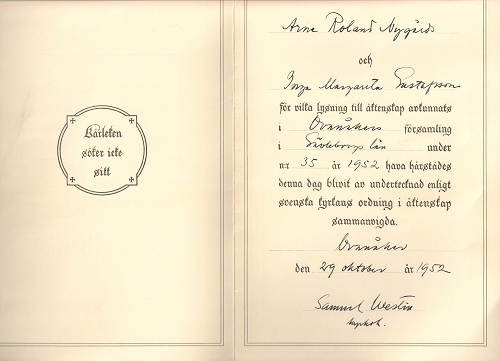 Kärleken
söker icke
sitt
Arne Roland Nygårds
och
Inga Margareta Gustafsson
för vilka lysning till äktenskap avkunnats
i Ovanåkers församling
i Gävleborgs län under
nr 35 år 1952 hava härstädes
denna dag blivit av undertecknad enligt
svenska kyrkans ordning i äktenskap
sammanvigda.
Ovanåker
den 29 oktober år 1952
Samuel Westin
kyrkoh.